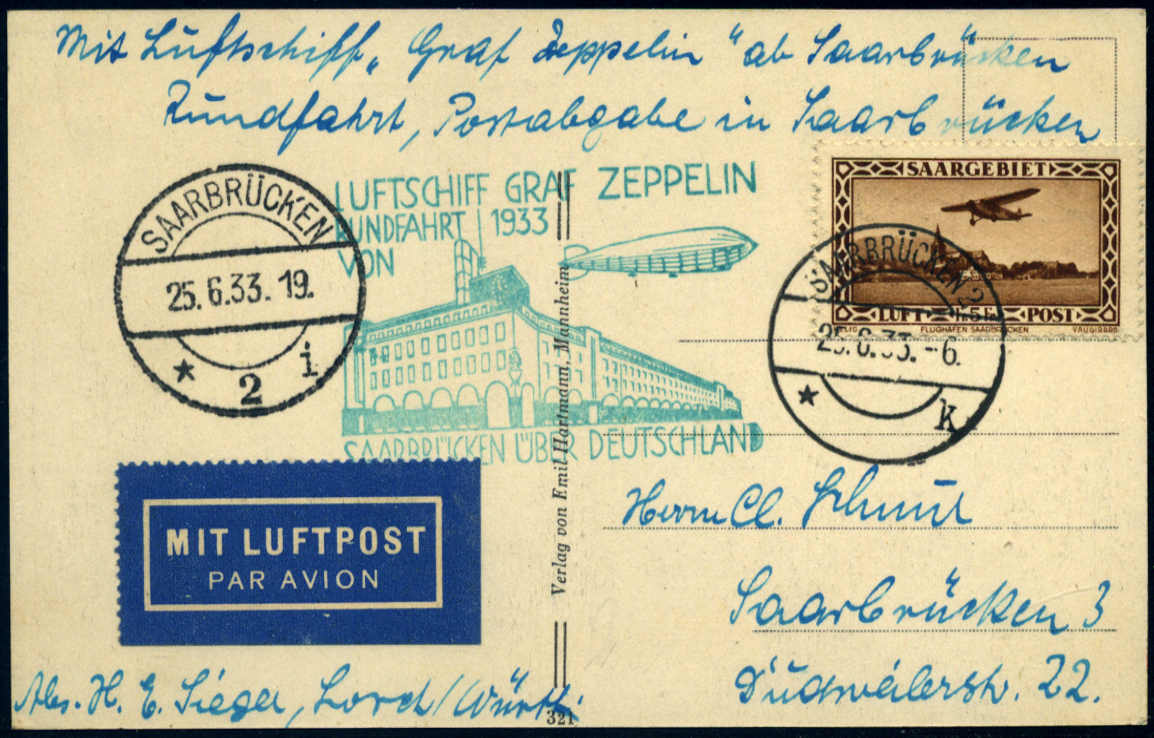 Mit Luftschiff „Graf Zeppelin" ab Saarbrücken
Rundfahrt, Postabgabe in Saarbrücken
SAARBRÜCKEN
25.6.33.19.
* 2 i
LUFTSCHIFF GRAF ZEPPELIN
RUNDFAHRT 1933
VON
SAARBRÜCKEN ÜBER DEUTSCHLAND
SAARGEBIET
LUFT- POST
FLUGHAFEN SAARBRÜCKEN
VAUGIRARD
SAARBRÜCKEN 2
25.6.33.-6.
* k
Verlag von Emil Hartmann, Mannheim
321
MIT LUFTPOST
PAR AVION
Herrn Cl.
Saarbrücken 3
Dudweilerstr. 22.
Abs. H. E. Sieger, Lorch/Württ.